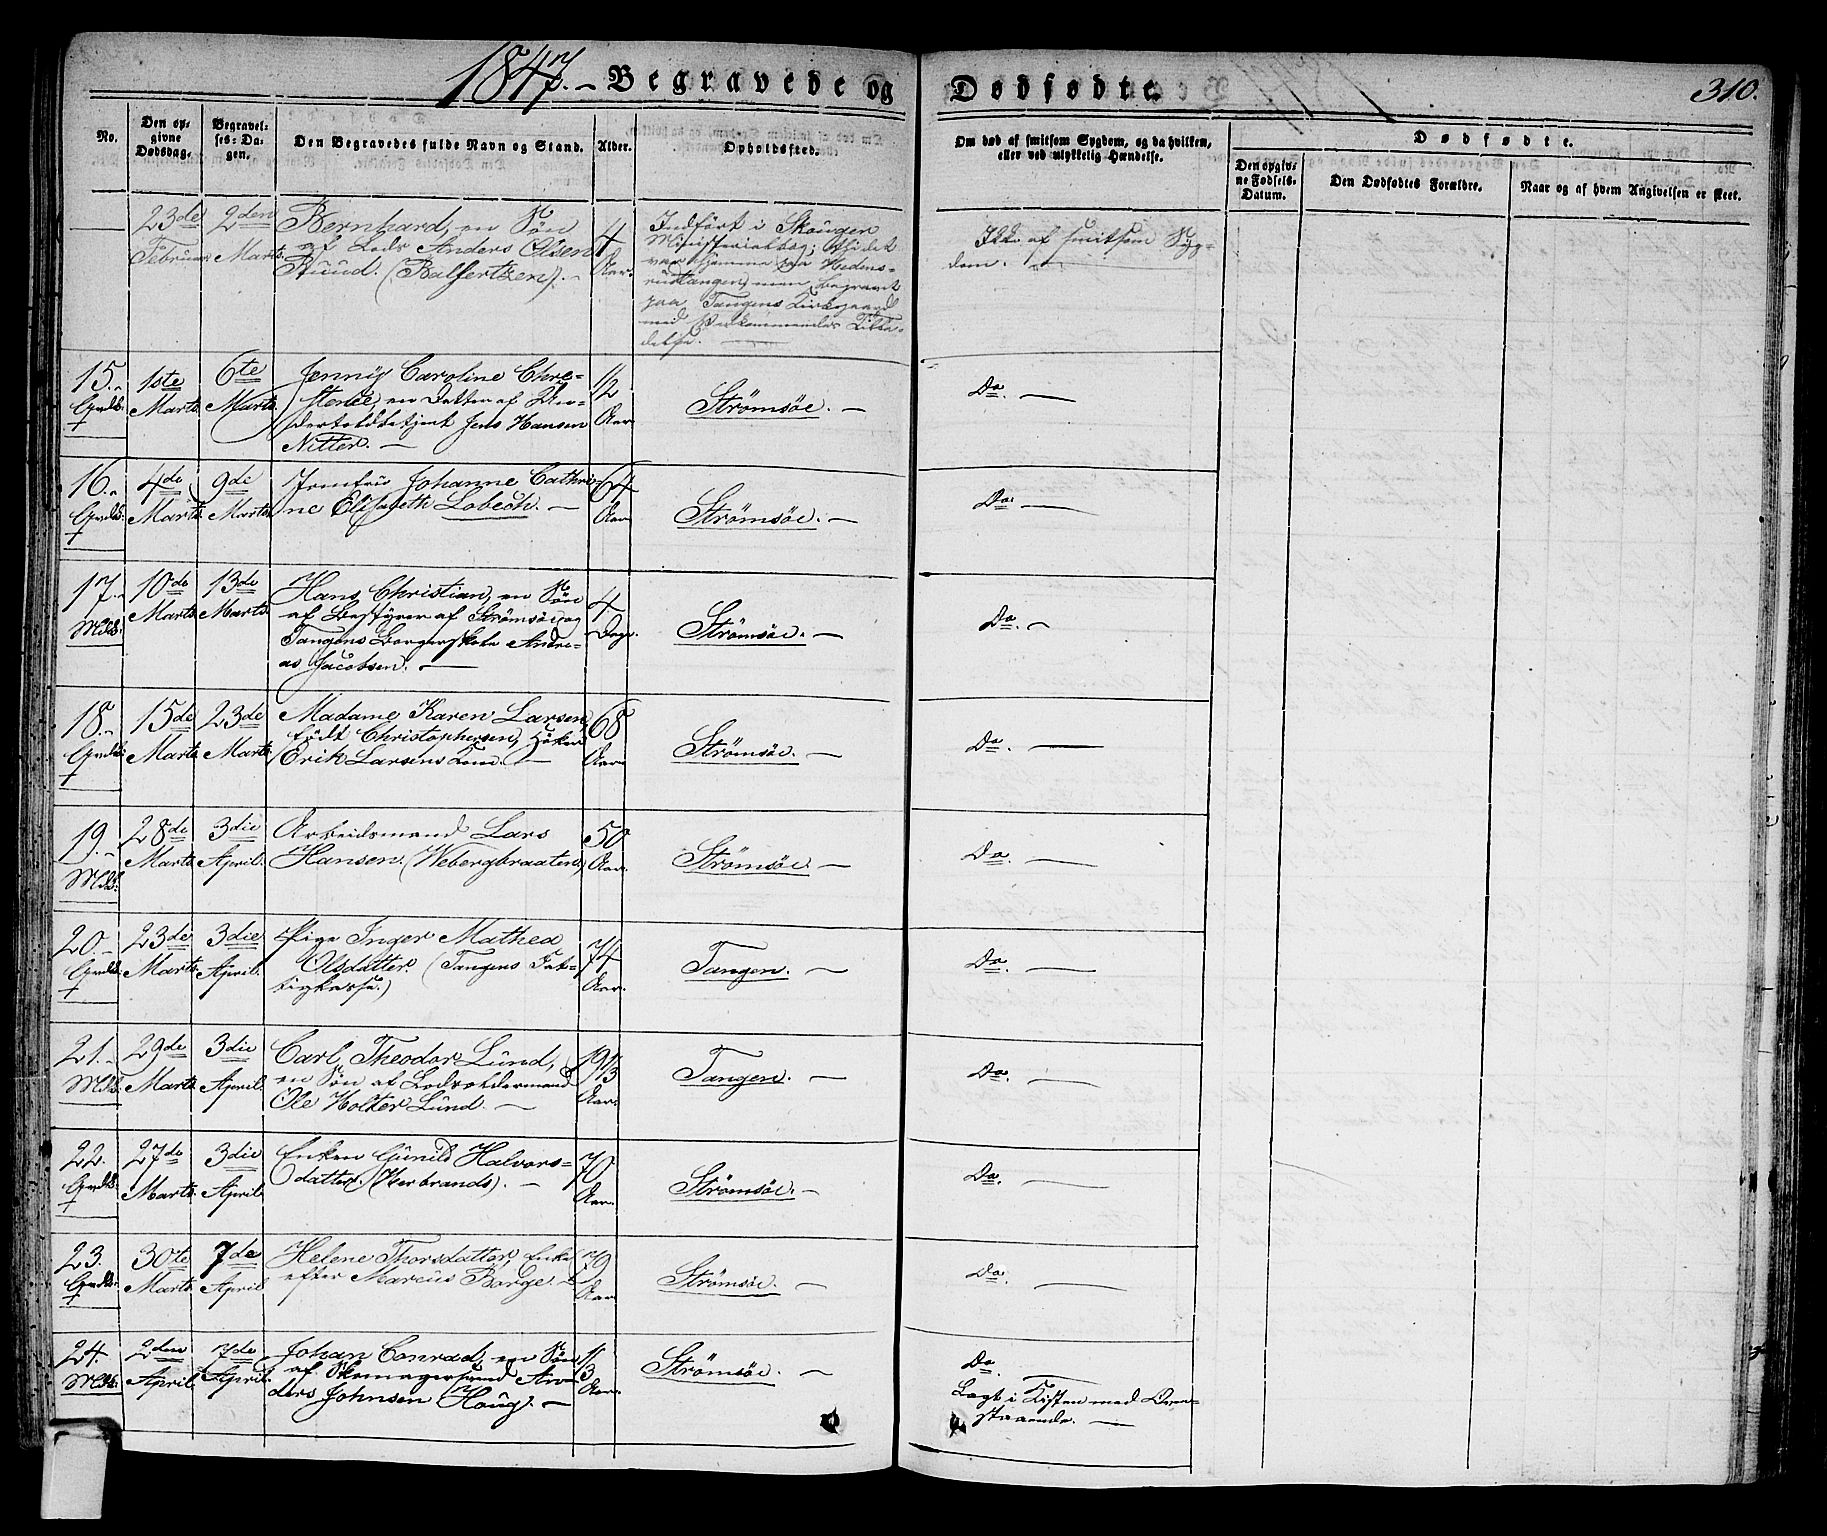 1847. – Begravede og
Dødfødte.
310.
No.
Den op-
givne
Dødsdag.
Begravel-
ses-Da-
gen.
Den Begravedes fulde Navn og Stand.
Alder.
Opholdssted.
Om død af smitsom Sygdom, og da hvilken,
eller ved ulykkelig Hændelse.
Dødfødte.
Den opgiv-
ne Fødsels-
Datum.
Den Dødfødtes Forældre.
Naar og af hvem Angivelsen er skeet.
23de Februar
2den Marts
Bernhard, en Søn
af Lods Anders Olsen
Ruud. (Balsertzen). –
4 Aar.
Indført i Skouger
Ministerialbog;
var hjemme paa
men begravet
paa Tangens Kirkegaard
med Vedkommendes Tilla-
delse. –
Ikke af smitsom Syg-
dom. –
15. Qvdk.
1ste Marts
6te Marts
Jenny Caroline Chri-
stence, en Datter af Un-
dertoldbetjent Jens Hansen
Nitter. –
1/2 Aar.
Strömsöe. –
Do. –
16. Qvdk.
4de Marts
9de Marts
Jomfru Johanne Cathri-
ne Elisabeth Lobech. –
64 Aar.
Strömsöe. –
Do. –
17. Mdk.
10de Marts
13de Marts
Hans Christian, en Søn
af Bestyrer af Strömsöe og
Tangens Borgerskole Andre-
as Jacobsen. –
4 Dage.
Strömsöe. –
Do. –
18. Qvdk.
15de Marts
23de Marts
Madame Karen Larsen,
født Christophersen, Höker
Erik Larsens Kone. –
68 Aar.
Strömsöe. –
Do. –
19. Mdk.
28de Marts
3die April.
Arbeidsmand Lars
Hansen. (Webergbraaten)
50 Aar.
Strömsöe. –
Do. –
20. Qvdk.
23de Marts
3die April.
Pige Inger Mathea
Olsdatter. (Tangens Fat-
tigkasse.)
74 Aar.
Tangen. –
Do. –
21. Mdk.
29de Marts
3die April.
Carl Theodor Lund,
en Søn af Lodsoldermand
Ole Holter Lund. –
19 1/3 Aar.
Tangen. –
Do. –
22. Qvdk.
27de Marts.
3die April.
Enken Gunild Halvors-
datter. (Herbrands). –
70 Aar.
Strömsöe. –
Do. –
23. Qvdk.
30te Marts
7de April
Helene Thorsdatter, Enke
efter Marcus Borge. –
79 Aar.
Strömsöe. –
Do. –
24. Mdk.
2den April
7de April.
Johan Conrad, en Søn
af Skomagersvend An-
ders Johnsen Houg. –
1/3 Aar.
Strömsöe. –
Do.
Lagt i Kisten med Oven-
staaende. –